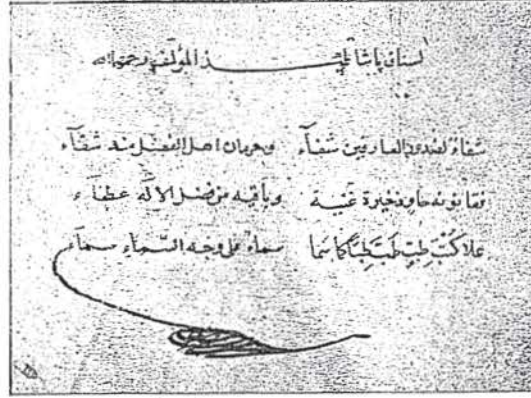 لسنان پاشا تلميذ المؤلف رحمهما الله
شفاء لصدور العارفين شفاء وحرمان اهل الفضل منه شقاء
فقانونه حاو ذخيرة غنية وباقيه من فضل الاله عطاء
علا كتب طب طب طبا كما سما سماء على وجه السماء سماء